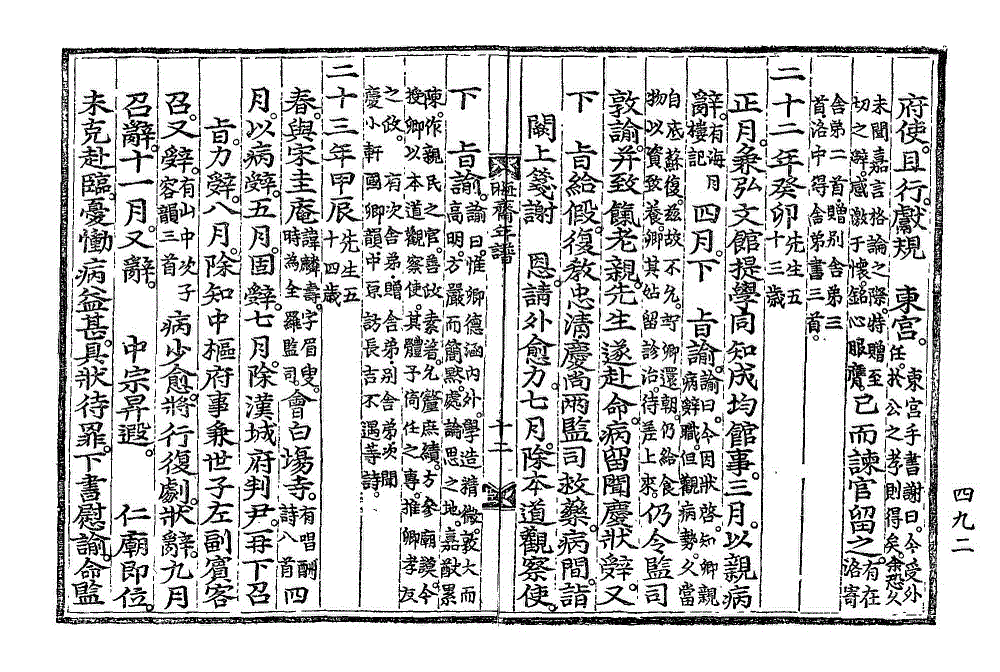 府使。且行。獻規 東宮。東宮手書謝曰。今受外任。狀公之孝則得矣。余恐久
未聞嘉言格論之際。特贈至切之辭。感激于懷。銘心眼膺已而諫官留之。有在洛寄
舍弟二首。贈別舍弟三首。洛中得舍弟書三首。
二十二年癸卯先生五十三歲
正月。兼弘文館提學同知成均館事。三月。以親病
辭。有海月樓記 四月。下 旨諭。諭曰。今因狀啓。知卿親病辭職。但觀病勢。久當
自底蘇復。玆故不允。可卿還朝。仍給食物以資致養。卿其姑留診治。待差上來。仍令監司
敦諭。并致餼老親。先生遂赴命。病留聞慶狀辭。又
下 旨給假。復敎忠淸慶尙兩監司救藥。病間。詣
闕上箋謝 恩。請外愈力。七月。除本道觀察使。
晦齋年譜 十二
下 旨諭。諭曰。惟卿德涵內外。學造精微。敦大而高明。方嚴而簡默。處論思之地。嘉猷累
陳。作親民之官。善政素著。允釐庶績。方參廟謨。今授卿以本道觀察使。其體予倚任之專。推卿孝友
之政。有次舍弟贈舍弟別舍弟次聞慶小軒國卿韻中原訪長吉不遇等詩。
二十三年甲辰先生五十四歲
春。與宋圭庵諱麟壽。字眉叟。時爲全羅監司。會白場寺。有唱酬詩八首四
月。以病辭。五月。固辭。七月。除漢城府判尹。再下召
旨。力辭。八月。除知中樞府事兼世子左副賓客
召。又辭。有山中次子容韻三首 病少愈。將行復劇。狀辭。九月
召辭。十一月。又辭 中宗昇遐。 仁廟卽位。
未克赴臨。憂慟病益甚。具狀待罪。下書慰諭。命監
四九二